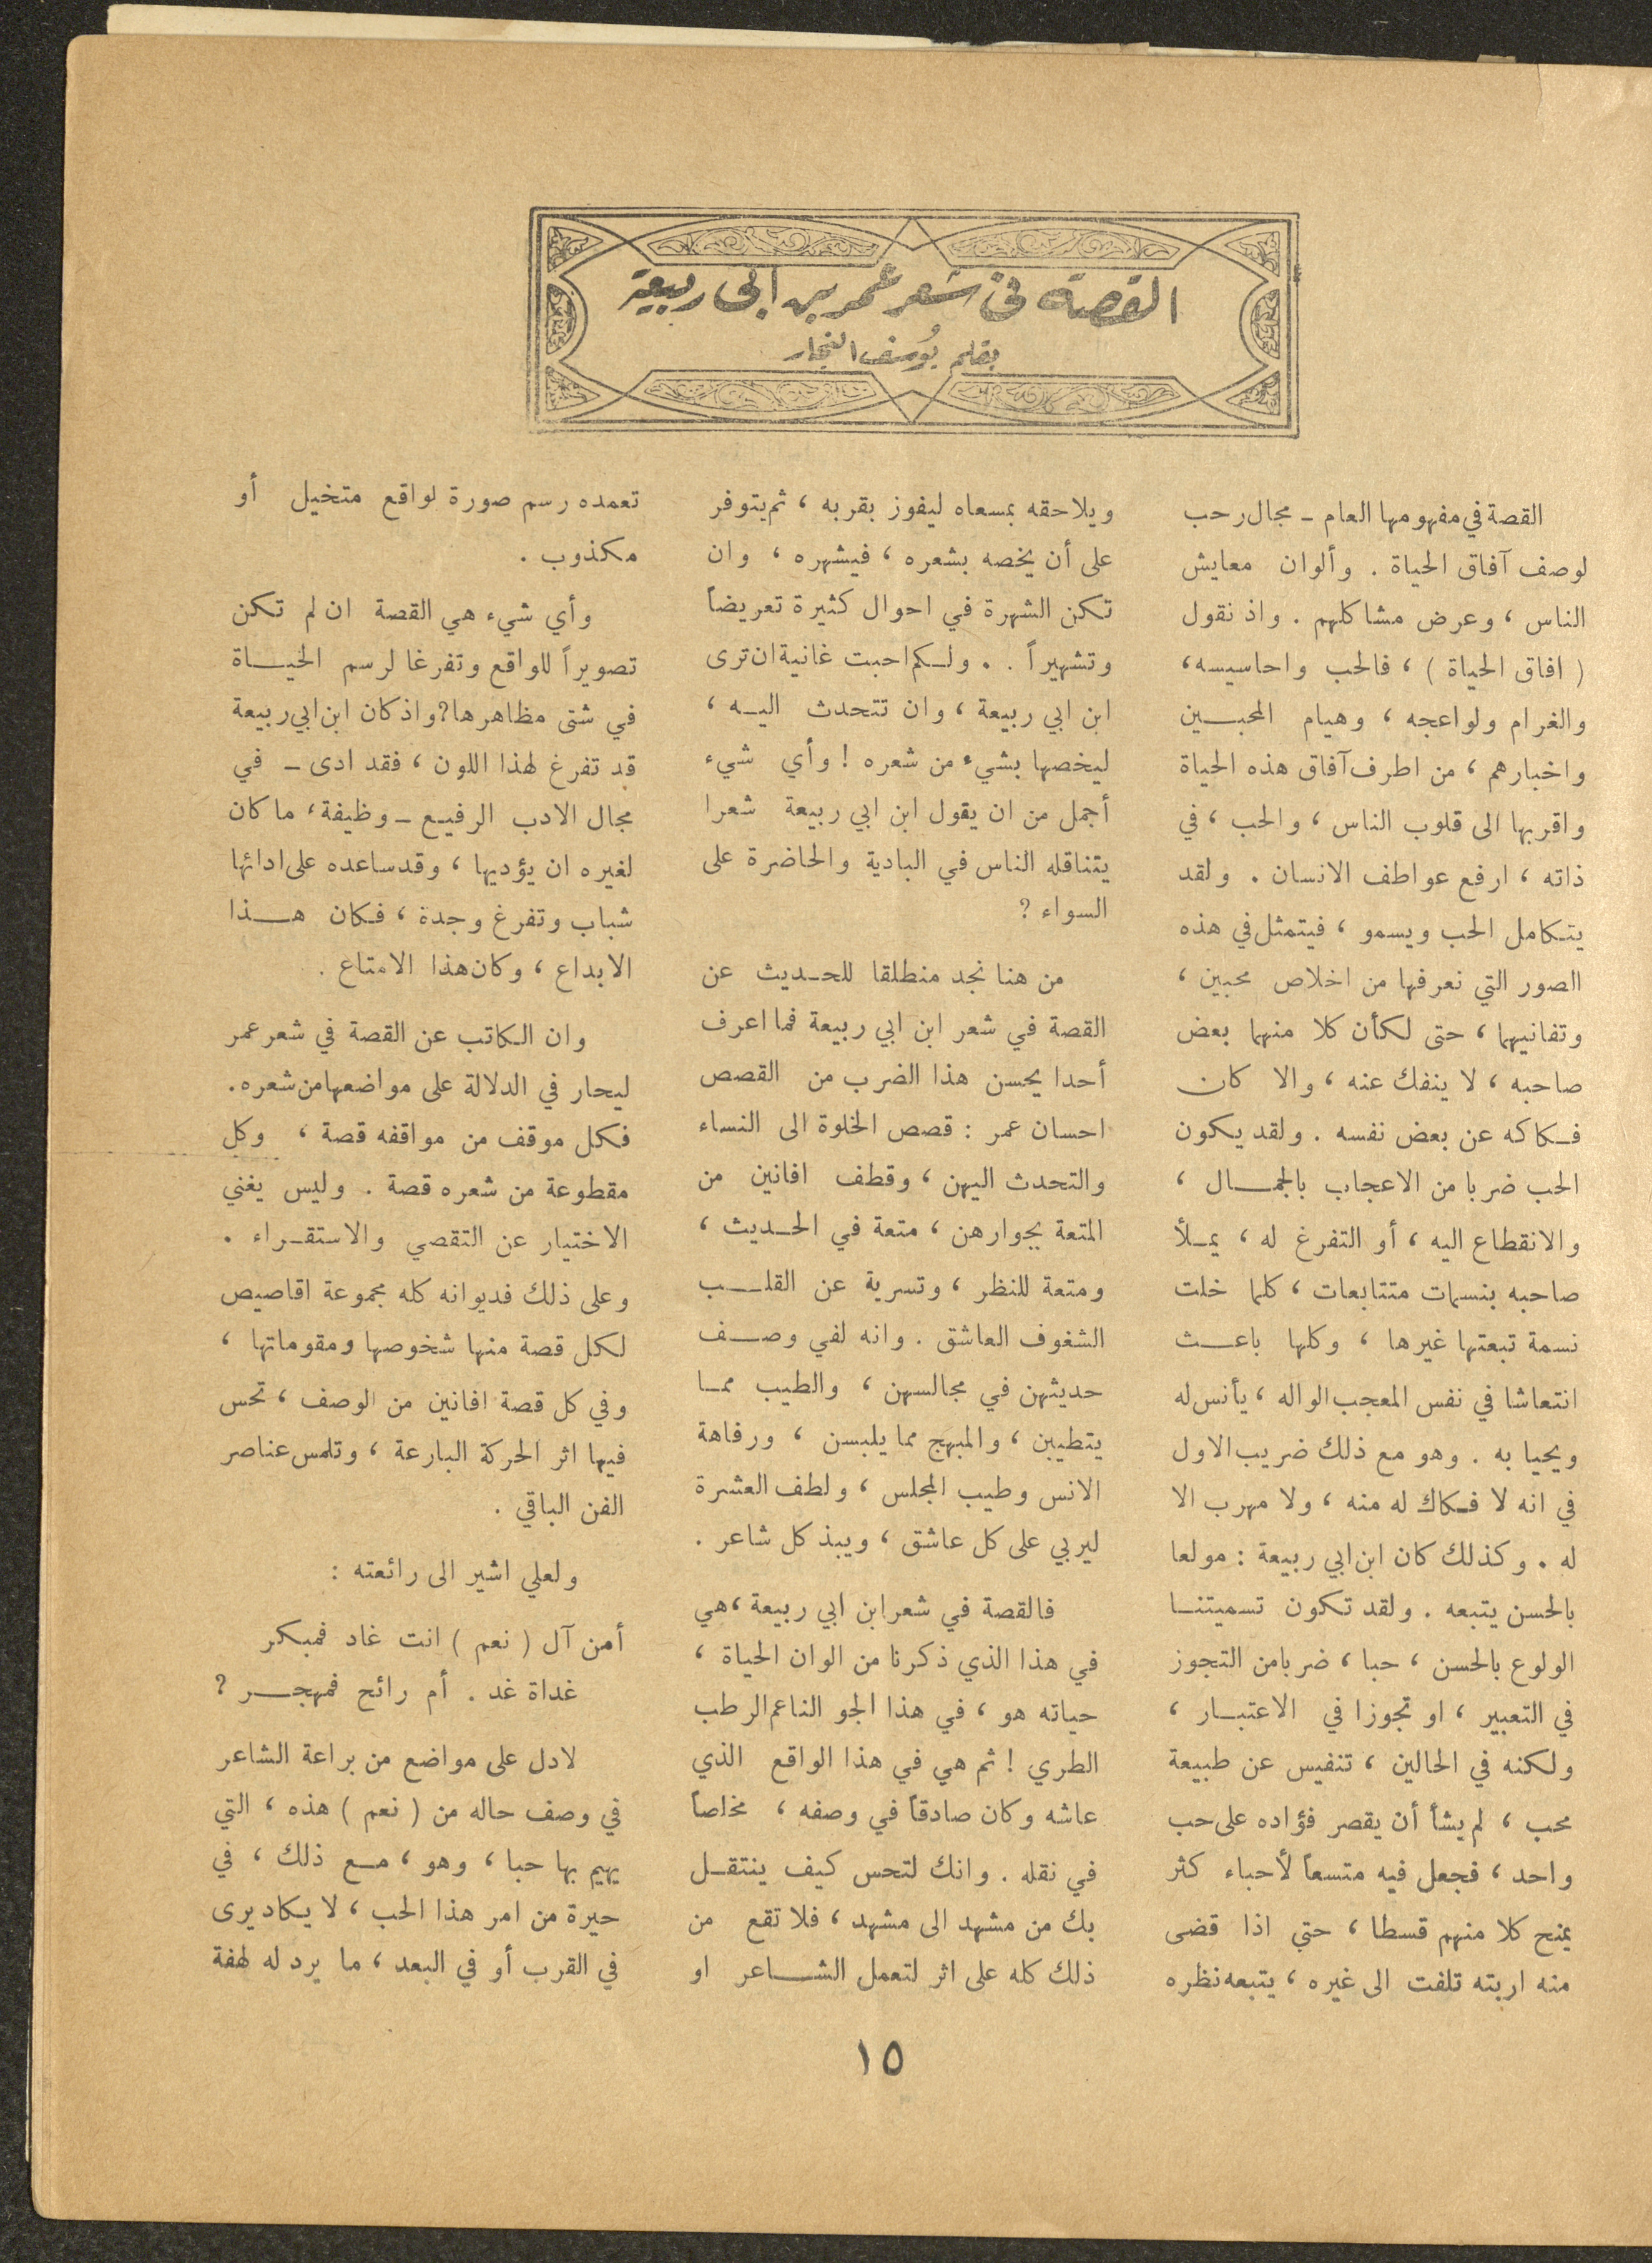 القصة في شعر عمر بن ابي ربيعة
بقلم يوسف النجار
القصة في مفهومها العام ـ مجال رحب
لوصف آفاق الحياة . وألوان معايش
الناس ، وعرض مشاكلهم . واذ نقول
( افاق الحياة ) ، فالحب واحاسيسه ،
والغرام ولواعجه ، وهيام المحبين
واخبارهم ، من اطرف آفاق هذه الحياة
واقربها الى قلوب الناس ، والحب ، في
ذاته ، ارفع عواطف الانسان . ولقد
يتكامل الحب ويسمو ، فيتمثل في هذه
الصور التي نعرفها من اخلاص محبين ،
وتفانيهما ، حتى لكأن كلا منهما بعض
صاحبه ، لا ينفك عنه ، والا كان
فكاكه عن بعض نفسه . ولقد يكون
الحب ضربا من الاعجاب بالجمال ،
والانقطاع اليه ، أو التفرغ له ، يملأ
صاحبه بنسمات متتابعات ، كلما خلت
نسمة تبعتها غيرها ، وكلها باعث
انتعاشا في نفس المعجب الواله ، يأنس له
ويحيا به . وهو مع ذلك ضريب الاول
في انه لا فكاك له منه ، ولا مهرب الا
له . وكذلك كان ابن ابي ربيعة : مولعا
بالحسن يتبعه . ولقد تكون تسميتنا
الولوع بالحسن ، حبا ، ضربا من التجوز
في التعبير ، او تجوزا في الاعتبار ،
ولكنه في الحالين ، تنفيس عن طبيعة
محب ، لم يشأ أن يقصر فؤاده على حب
واحد ، فجعل فيه متسعاً لأحباء كثر
يمنح كلا منهم قسطا ، حتي اذا قضى
منه اربته تلفت الى غيره ، يتبعه نظره
ويلاحقه بمسعاه ليفوز بقربه ، ثم يتوفر
على أن يخصه بشعره ، فيشهره ، وان
تكن الشهرة في احوال كثيرة تعريضاً
وتشهيراً . . ولكم احبت غانية ان ترى
ابن ابي ربيعة ، وان تتحدث اليه ،
ليخصها بشيء من شعره ! وأي شيء
أجمل من ان يقول ابن ابي ربيعة شعرا
يتناقله الناس في البادية والحاضرة على
السواء ؟
من هنا نجد منطلقا للحديث عن
القصة في شعر ابن ابي ربيعة فما اعرف
أحدا يحسن هذا الضرب من القصص
احسان عمر : قصص الخلوة الى النساء
والتحدث اليهن ، وقطف افانين من
المتعة بجوارهن ، متعة في الحديث ،
ومتعة للنظر ، وتسرية عن القلب
الشغوف العاشق . وانه لفي وصف
حديثهن في مجالسهن ، والطيب مما
يتطيبن ، والمبهج مما يلبسن ، ورفاهة
الانس وطيب المجلس ، ولطف العشرة
ليربي على كل عاشق ، ويبذ كل شاعر .
فالقصة في شعر ابن ابي ربيعة ، هي
في هذا الذي ذكرنا من الوان الحياة ،
حياته هو ، في هذا الجو الناعم الرطب
الطري ! ثم هي في هذا الواقع الذي
عاشه وكان صادقاً في وصفه ، مخلصاً
في نقله . وانك لتحس كيف ينتقل
بك من مشهد الى مشهد ، فلا تقع من
ذلك كله على اثر لتعمل الشاعر او
تعمده رسم صورة لواقع متخيل أو
مكذوب .
وأي شيء هي القصة ان لم تكن
تصويراً للواقع وتفرغا لرسم الحياة
في شتى مظاهرها ؟ واذ كان ابن ابي ربيعة
قد تفرغ لهذا اللون ، فقد ادى ـ في
مجال الادب الرفيع ـ وظيفة ، ما كان
لغيره ان يؤديها ، وقد ساعده على ادائها
شباب وتفرغ وجدة ، فكان هذا
الابداع ، وكان هذا الامتاع .
وان الكاتب عن القصة في شعر عمر
ليحار في الدلالة على مواضعها من شعره .
فكل موقف من مواقفه قصة ، وكل
مقطوعة من شعره قصة . وليس يغني
الاختيار عن التقصي والاستقراء .
وعلى ذلك فديوانه كله مجموعة اقاصيص
لكل قصة منها شخوصها ومقوماتها ،
وفي كل قصة افانين من الوصف ، تحس
فيها اثر الحركة البارعة ، وتلمس عناصر
الفن الباقي .
ولعلي اشير الى رائعته :
أمن آل ( نعم ) انت غاد فمبكر
غداة غد . أم رائح فمهجر ؟
لادل على مواضع من براعة الشاعر
في وصف حاله من ( نعم ) هذه ، التي
يهيم بها حبا ، وهو ، مع ذلك ، في
حيرة من امر هذا الحب ، لا يكاد يرى
في القرب أو في البعد ، ما يرد له لهفة
١٥